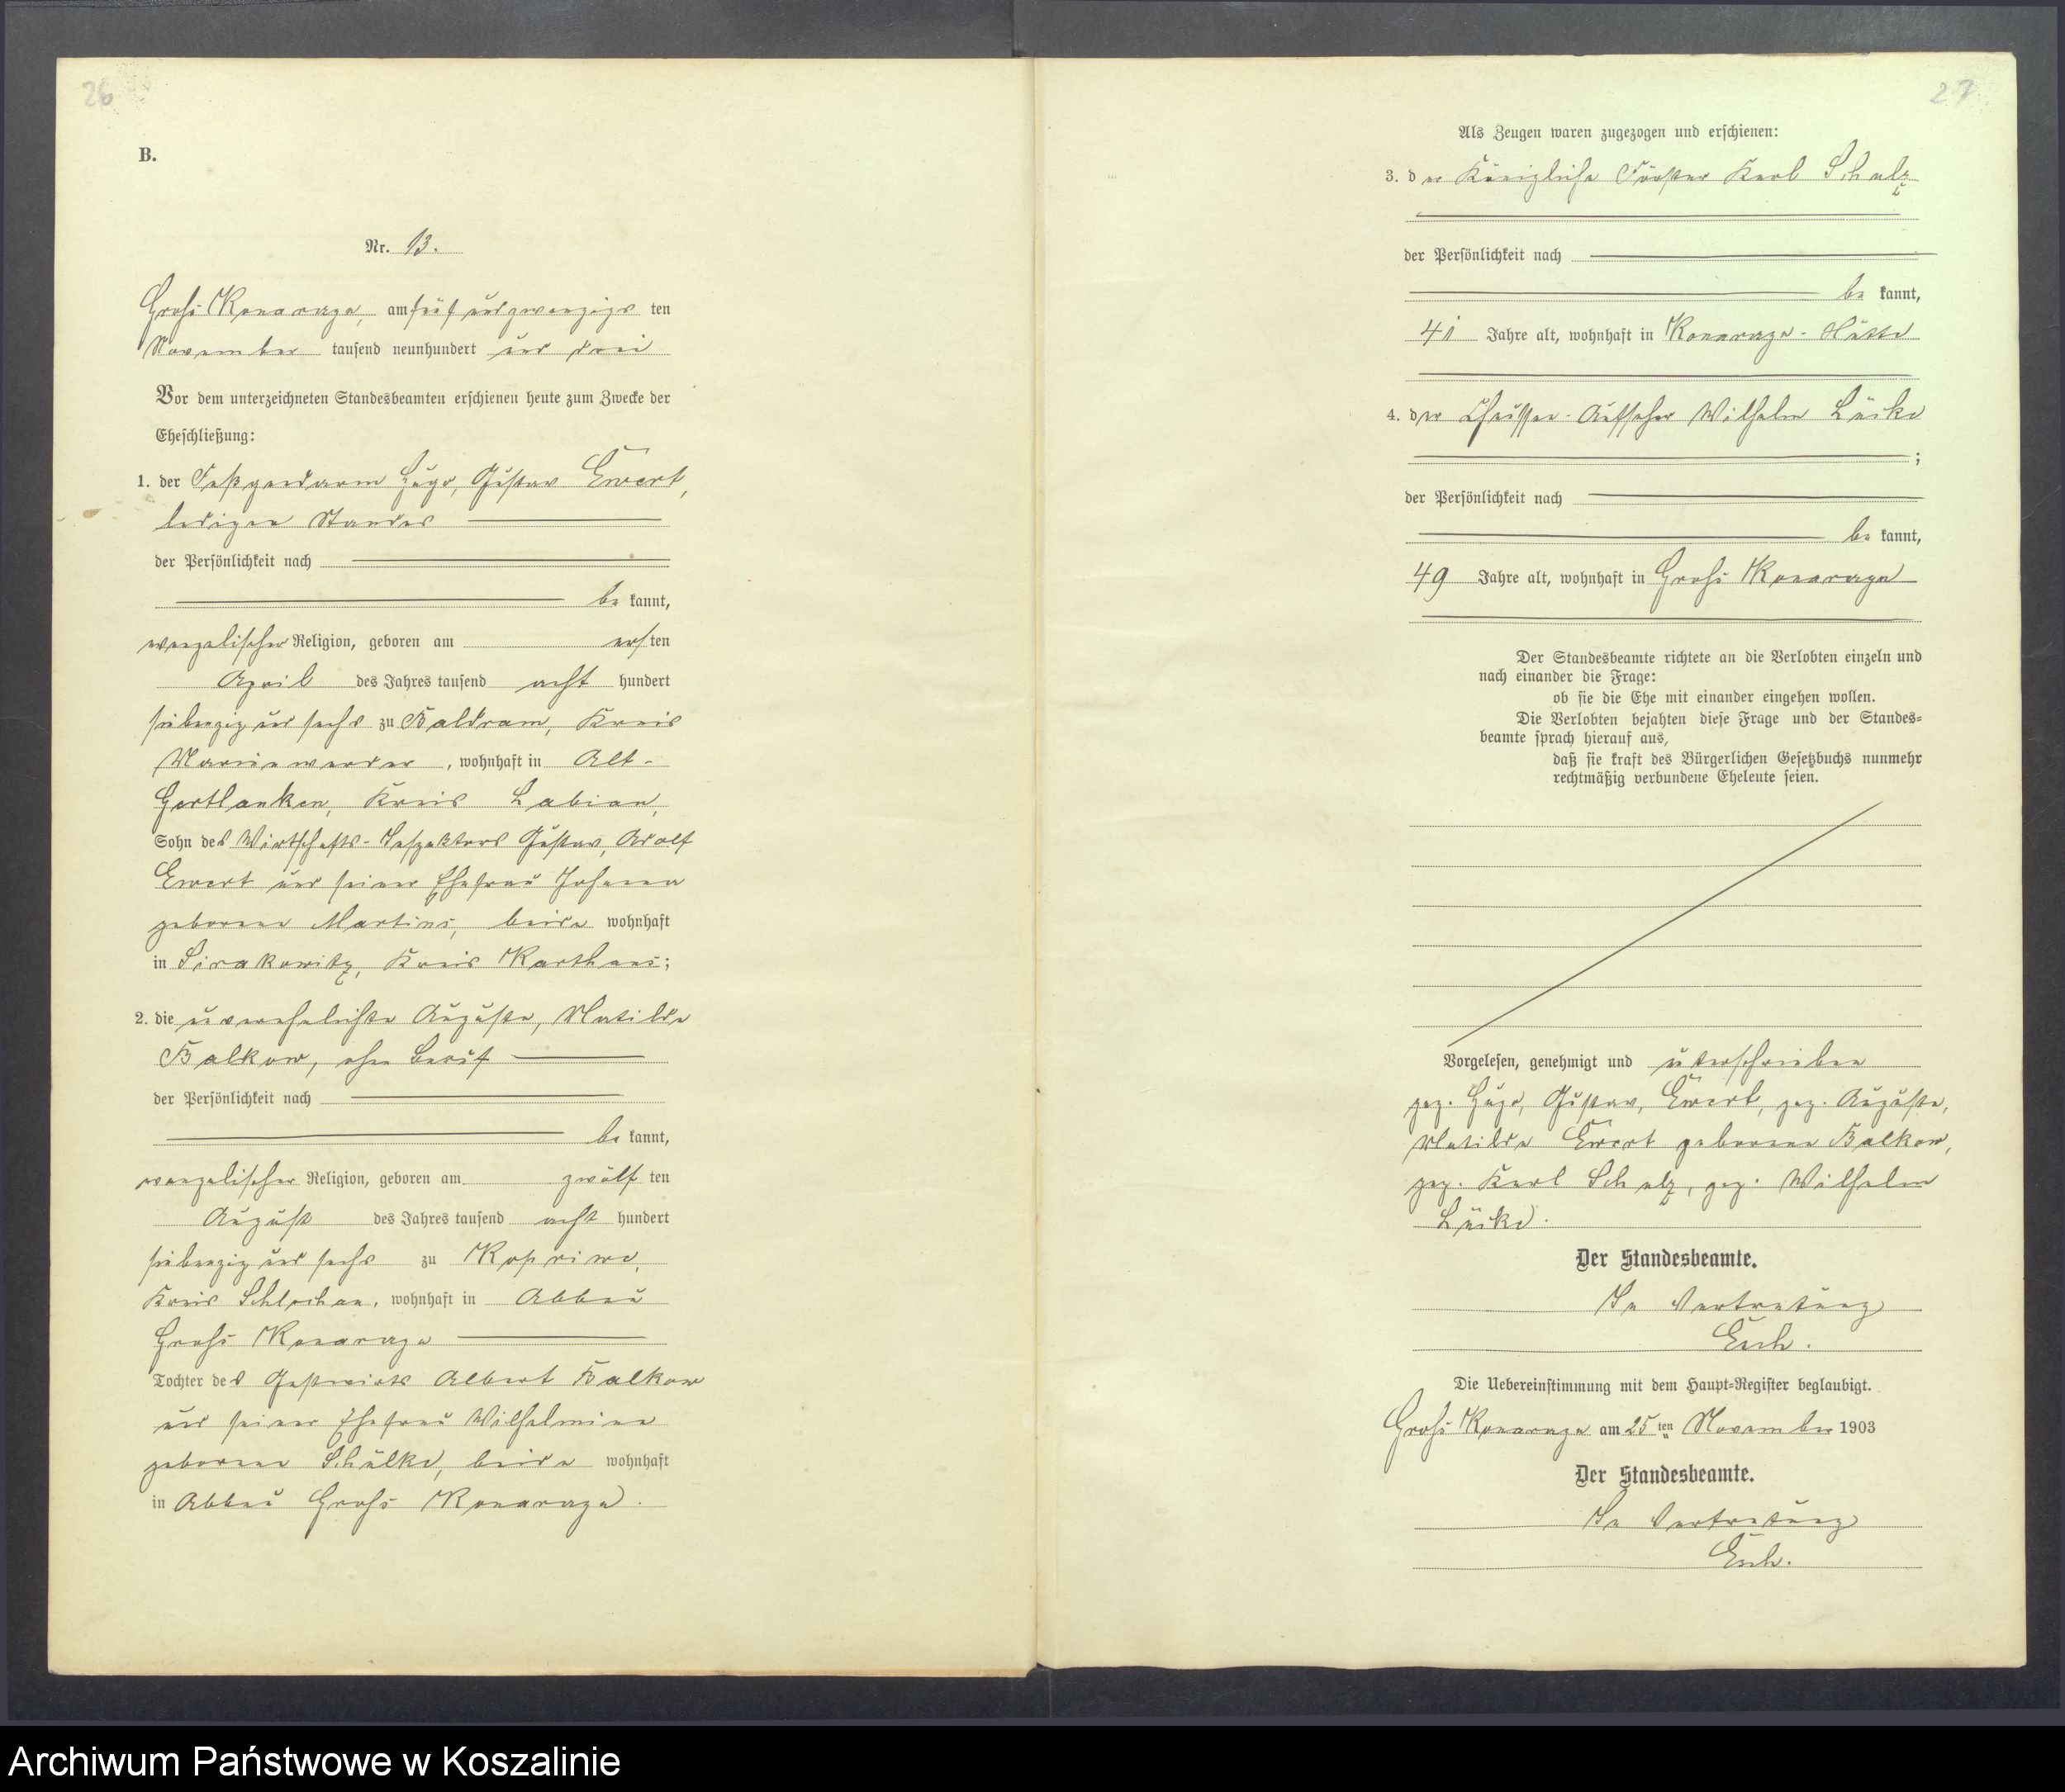 26
B.
Nr. 13.
Groß Konarczyn, am fünf und zwanzigs ten
November tausend neunhundert und drei
Vor dem unterzeichneten Standesbeamten erschienen heute zum Zwecke der
Eheschließung:
1. der Fußgendarm Hugo, Gustav Ewert,
ledigen Standes
der Persönlichkeit nach
be kannt,
evangelischer Religion, geboren am ers ten
April des Jahres tausend acht hundert
siebenzig und sechs zu Baldram, Kreis
Marienwerder, wohnhaft in Alt-
Gertlauken, Kreis Labiau,
Sohn des Wirtschafts-Inspektors Gustav, Adolf
Ewert und seiner Ehefrau Johanna
geborene Martins, beide wohnhaft
in Sierakowitz, Kreis Karthaus;
2. die unverehelichte Auguste, Matilde
Balkow, ohne Beruf
der Persönlichkeit nach
be kannt,
evangelischer Religion, geboren am zwölf ten
August des Jahres tausend acht hundert
siebenzig und sechs zu Kopriwe,
Kreis Schlochau, wohnhaft in Abbau
Groß Konarczyn
Tochter des Gastwirts Albert Balkow
und seiner Ehefrau Wilhelmine
geborene Schülke, beide wohnhaft
in Abbau Groß Konarczyn.
27
Als Zeugen waren zugezogen und erschienen:
3. der Königliche Förster Karl Schulz
der Persönlichkeit nach
be kannt,
41 Jahre alt, wohnhaft in Konarczyn-Hütte
4. der Chaussee-Aufseher Wilhelm Lüske
;
der Persönlichkeit nach
be kannt,
49 Jahre alt, wohnhaft in Groß Konarczyn
Der Standesbeamte richtete an die Verlobten einzeln und
nach einander die Frage:
ob sie die Ehe mit einander eingehen wollen.
Die Verlobten bejahten diese Frage und der Standes-
beamte sprach hierauf aus,
daß sie kraft des Bürgerlichen Gesetzbuchs nunmehr
rechtmäßig verbundene Eheleute seien.
Vorgelesen, genehmigt und unterschrieben
gez. Hugo, Gustav, Ewert, gez. Auguste,
Matilde Ewert geborene Balkow,
gez. Karl Schulz, gez. Wilhelm
Lüske.
Der Standesbeamte.
In Vertretung
Esch.
Die Uebereinstimmung mit dem Haupt-Register beglaubigt.
Groß Konarczyn am 25 ten November 1903
Der Standesbeamte.
In Vertretung
Esch.
Archiwum Państwowe w Koszalinie